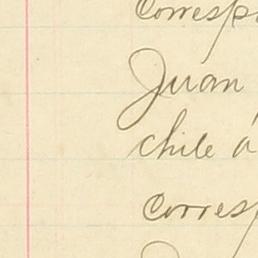 Corresp
Juan
chile a
Corres